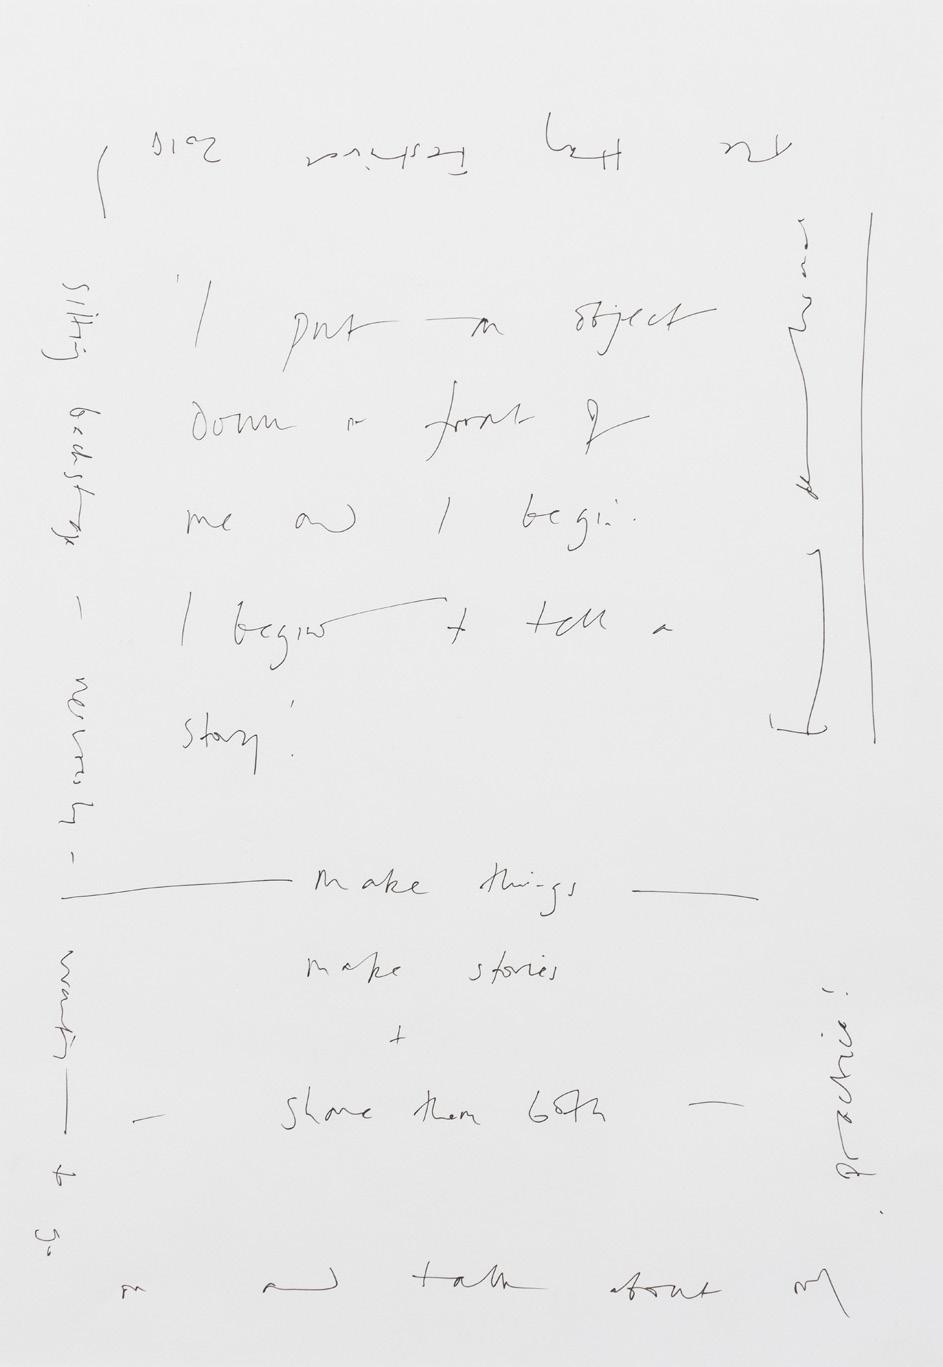 The Hay Festival 2010
'I put an object
down in front of
me and I begin.
I begin to tell a
story.'
— make things —
make stories
+
— share them both —
sitting backstage – nervously – waiting — to go
on and talk about my
practice!